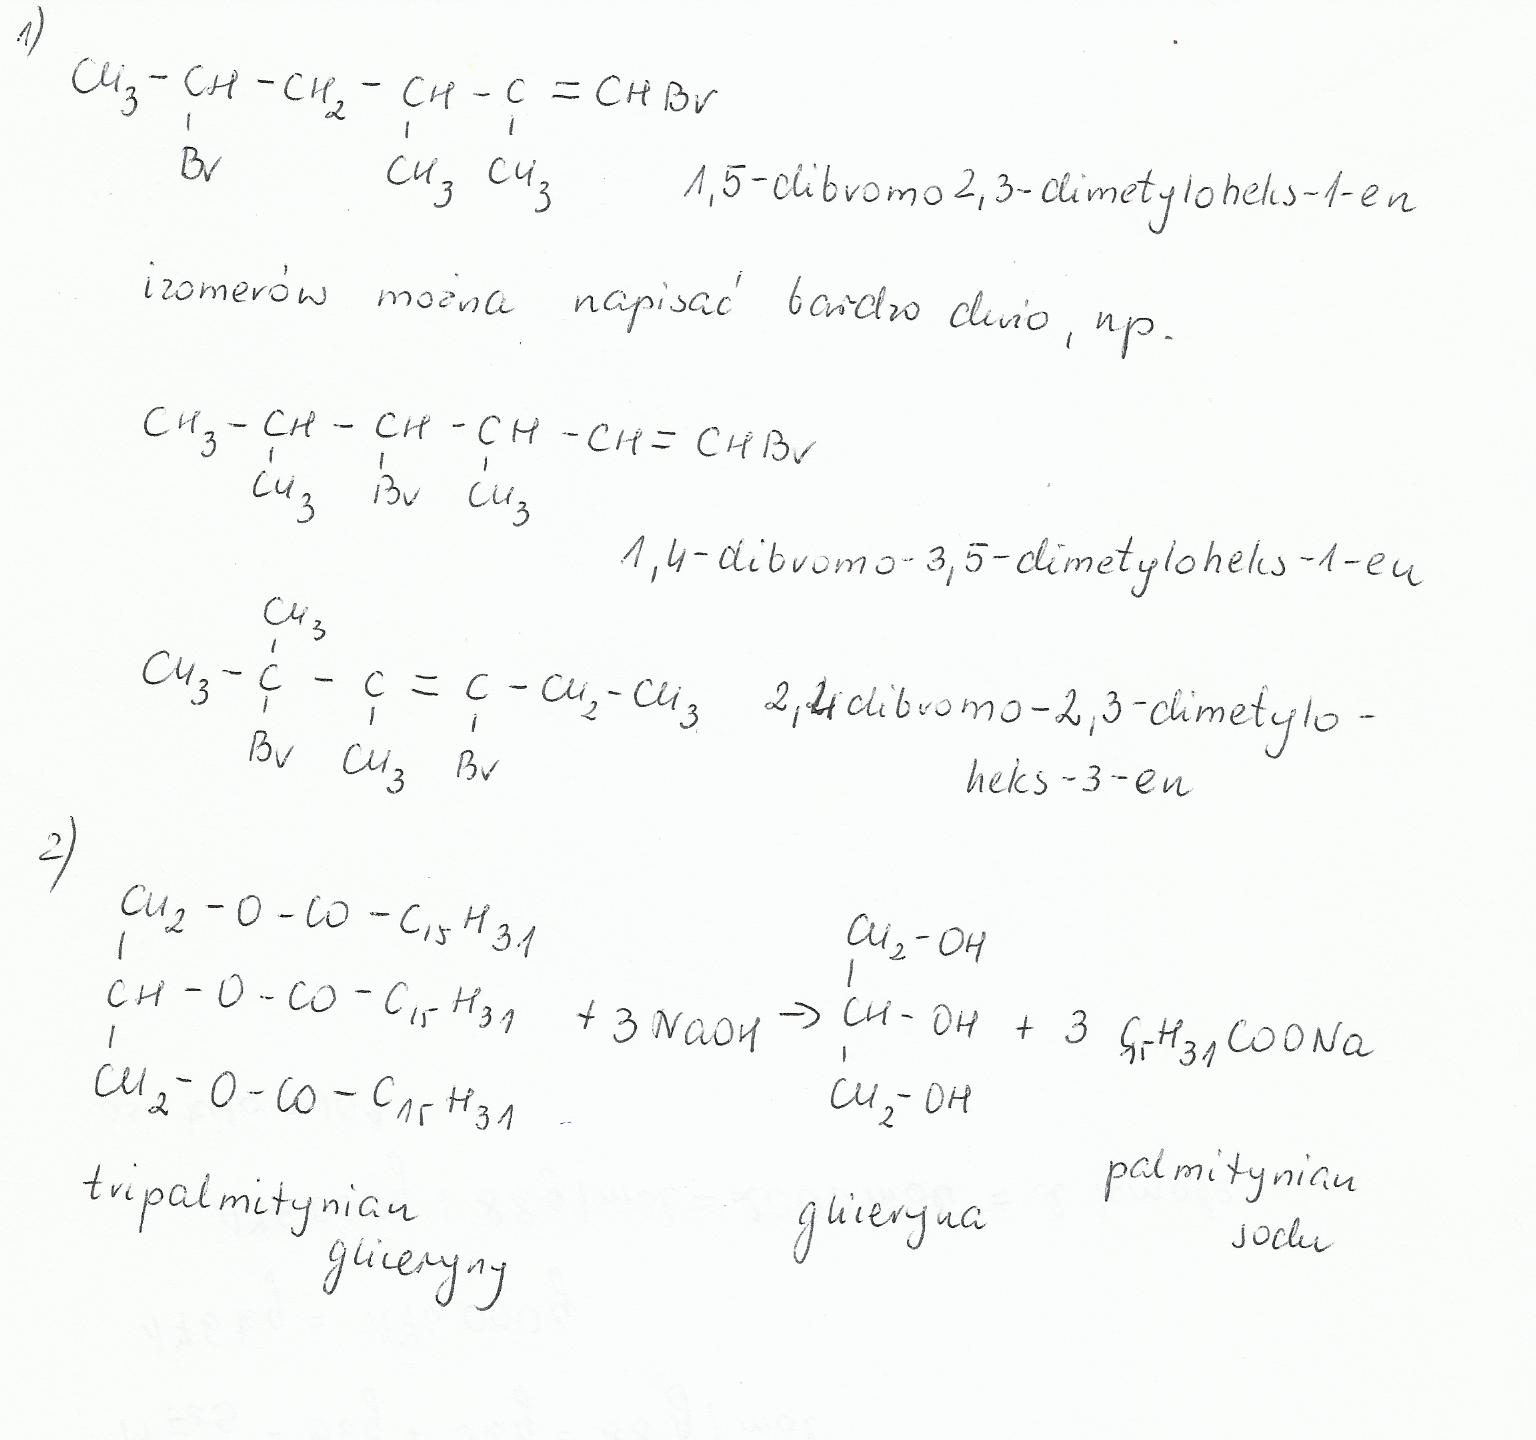 1)
CH3 - CH - CH2 - CH - C = CHBr
Br CH3 CH3
1,5-dibromo 2,3-dimetyloheks-1-en
izomerów można napisać bardzo dużo, np.
CH3 - CH - CH - CH - CH = CHBr
CH3 Br CH3
1,4-dibromo-3,5-dimetyloheks-1-en
CH3
CH3 - C - C = C - CH2 - CH3
Br CH3 Br
2,4 dibromo-2,3-dimetylo-
heks-3-en
2)
CH2 - O - CO - C15H31
CH - O - CO - C15H31 + 3 NaOH → CH - OH + 3 C15H31COONa
CH2 - O - CO - C15H31
CH2 - OH
CH2 - OH
tripalmitynian
gliceryny
gliceryna
palmitynian
sodu